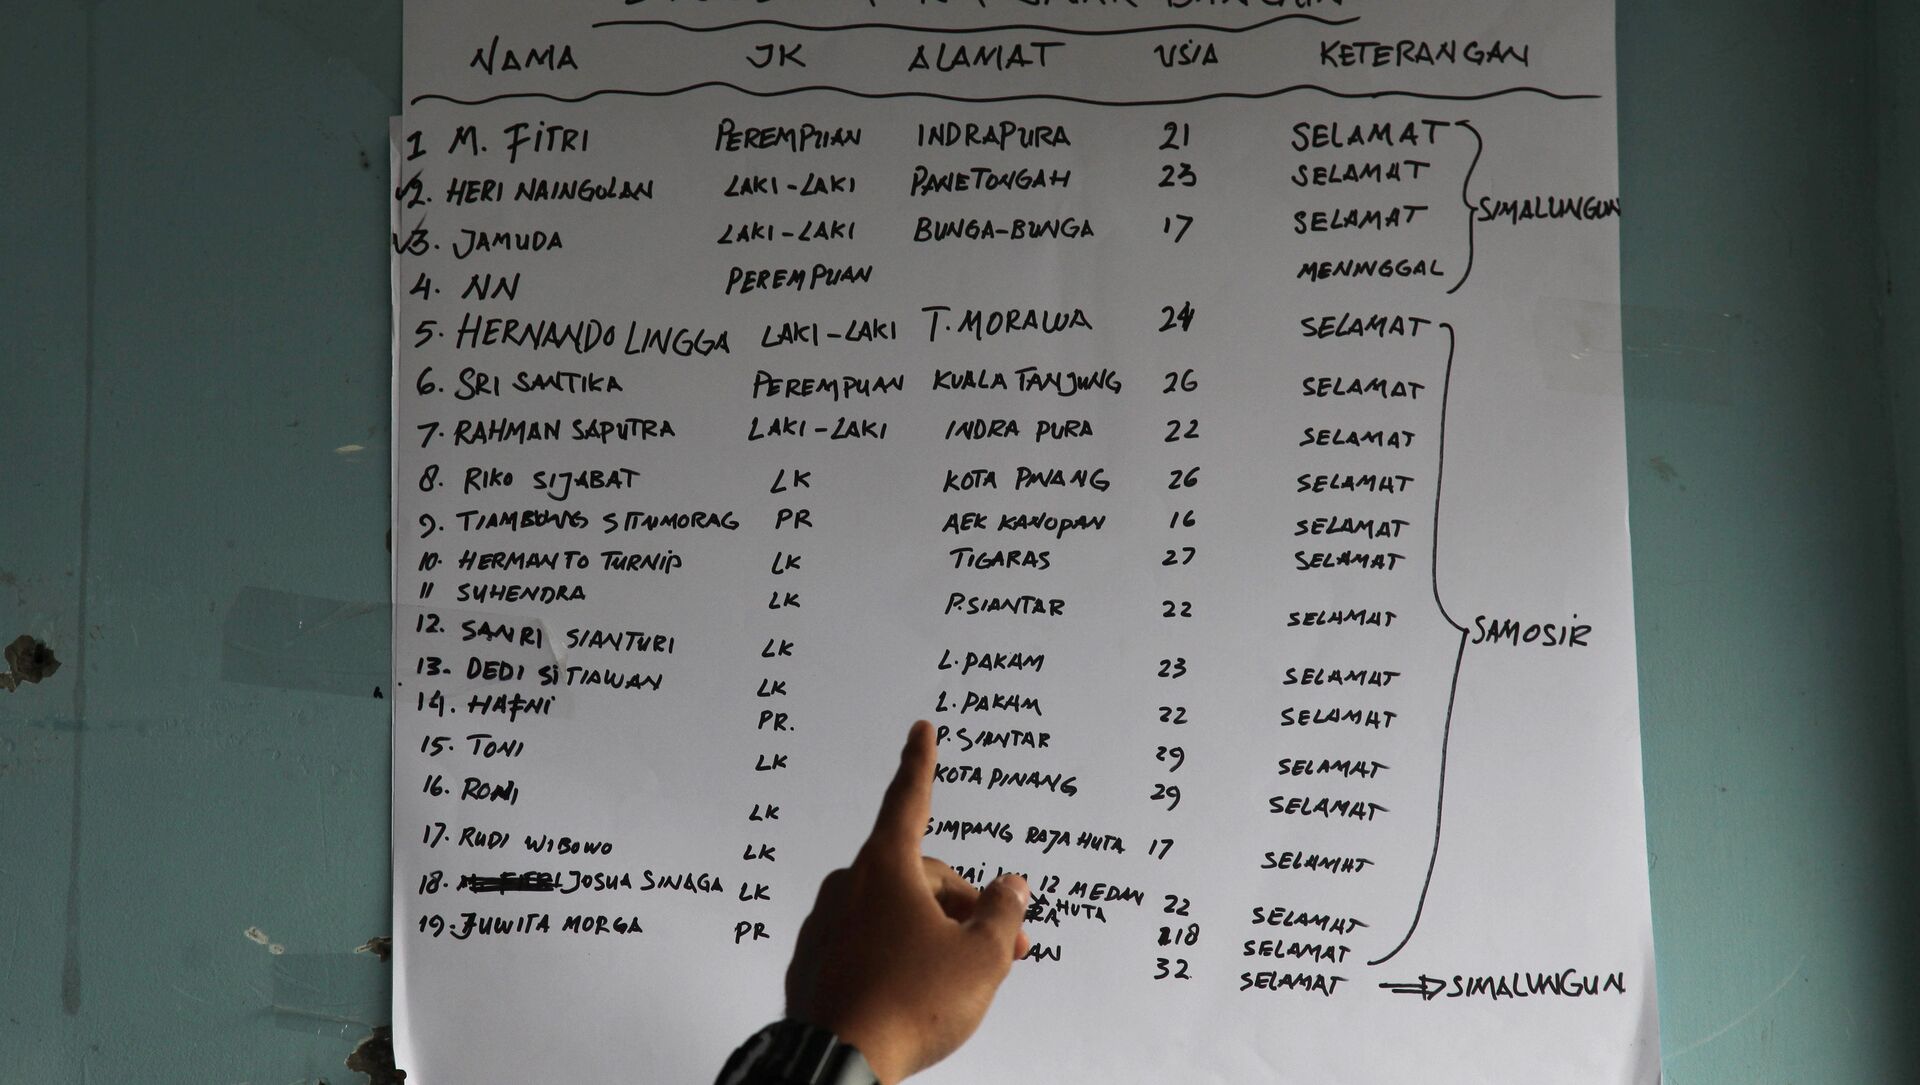 NAMA JK ALAMAT USIA KETERANGAN
1 M. FITRI PEREMPUAN INDRAPURA 21 SELAMAT
2. HERI NAINGOLAN LAKI-LAKI PANETONGAH 23 SELAMAT
SIMALUNGUN
3. JAMUDA LAKI-LAKI BUNGA-BUNGA 17 SELAMAT
4. NN PEREMPUAN MENINGGAL
5. HERNANDO LINGGA LAKI-LAKI T. MORAWA 24 SELAMAT
6. SRI SANTIKA PEREMPUAN KUALA TANJUNG 26 SELAMAT
7. RAHMAN SAPUTRA LAKI-LAKI INDRA PURA 22 SELAMAT
8. RIKO SIJABAT LK KOTA PINANG 26 SELAMAT
9. SITINMORAG PR AEK KANOPAN 16 SELAMAT
10. HERMANTO TURNIP LK TIGARAS 27 SELAMAT
11 SUHENDRA LK P.SIANTAR 22 SELAMAT
SAMOSIR
12. SANRI SIANTURI LK L.PAKAM 23 SELAMAT
13. DEDI SITIAWAN LK L.PAKAM 22 SELAMAT
14. HAFNI PR. P.SIANTAR 29 SELAMAT
15. TONI LK KOTA PINANG 29 SELAMAT
16. RONI LK SIMPANG RAJA HUTA 17 SELAMAT
17. RUDI WIBOWO LK 12 MEDAN 22 SELAMAT
18. JOSUA SINAGA LK HUTA 18 SELAMAT
19. JUWITA MORGA PR 32 SELAMAT SIMALUNGUN